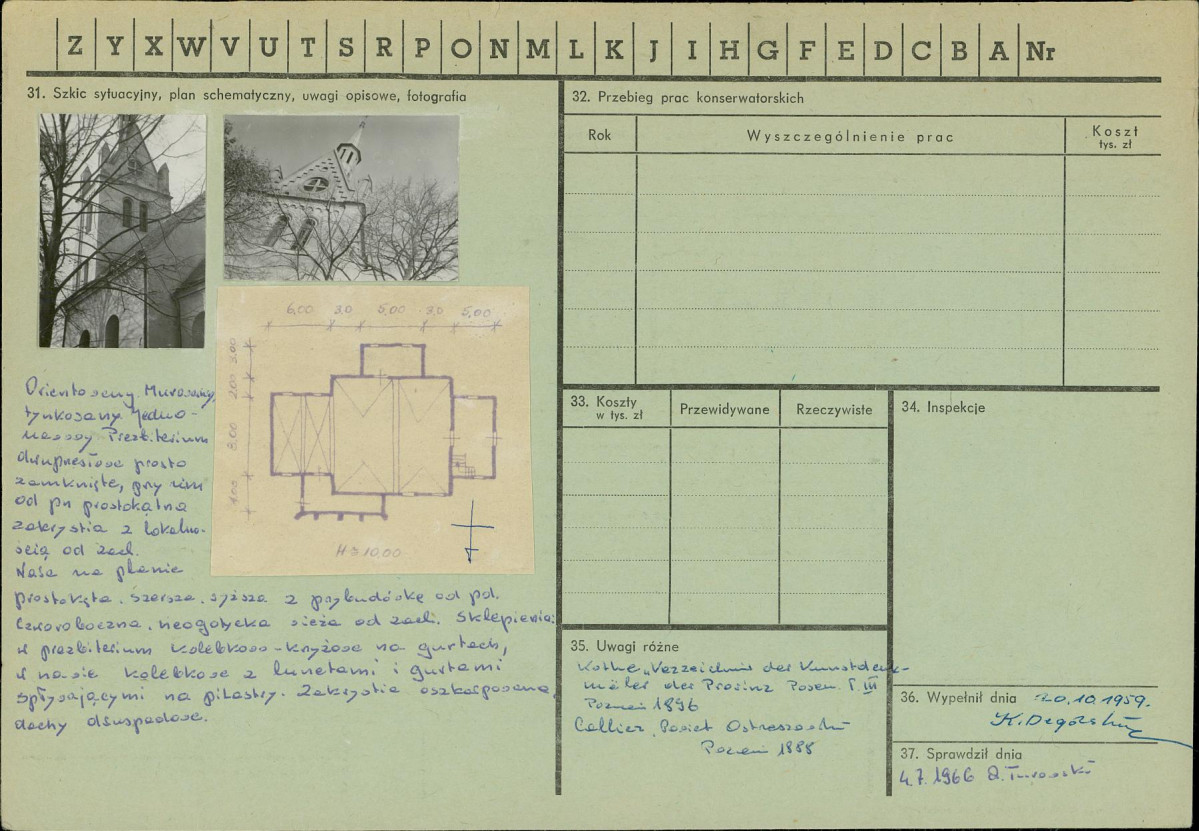 Z Y X W V U T S R P O N M L K J I H G F E D C B A Nr
31. Szkic sytuacyjny, plan schematyczny, uwagi opisowe, fotografia
6,00 3,0 5,00 3,0 5,00
3,00
2,00
8,00
4,00
H ≅ 10,00
Orientowany. Murowany,
tynkowany. Jedno-
nawowy. Prezbiterium
dwuprzęsłowe prosto
zamknięte, przy nim
od pn prostokątna
zakrystia z lokalno-
ścią od zach.
Nawa na planie
prostokąta, szersza, wyższa z przybudówką od pd.
Czworoboczna, neogotycka wieża od zach. Sklepienia:
w prezbiterium kolebkowo-krzyżowe na gurtach,
w nawie kolebkowe z lunetami i gurtami
spływającymi na pilastry. Zakrystia oszkarpowana,
dachy dwuspadowe.
32. Przebieg prac konserwatorskich
Rok
Wyszczególnienie prac
Koszt
tys. zł
33. Koszty
w tys. zł
Przewidywane
Rzeczywiste
34. Inspekcje
35. Uwagi różne
Kothe „Verzeichnis der Kunstdenk-
mäler der Provinz Posen. T. III
Poznań 1896
Callier, Powiat Ostrzeszowski
Poznań 1888
36. Wypełnił dnia 20.10.1959.
K. Degórska
37. Sprawdził dnia
4.7.1966